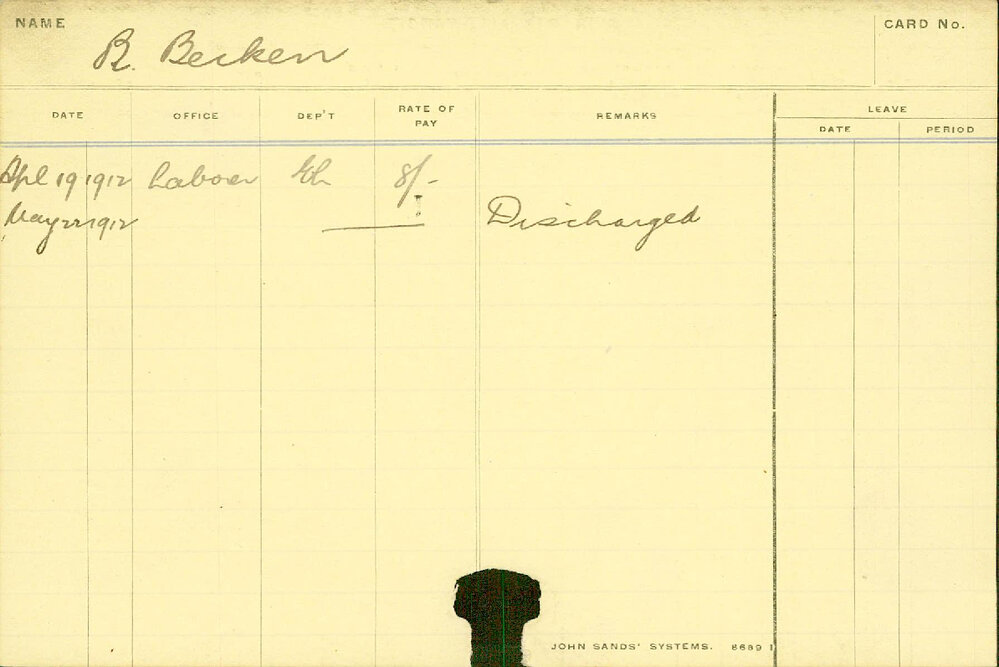 NAME R. Becken CARD No.
DATE OFFICE DEP'T RATE OF PAY REMARKS LEAVE
DATE PERIOD
Apl 19 1912 Laborer 8/-
May 22 1912 Discharged
JOHN SANDS' SYSTEMS. 8689